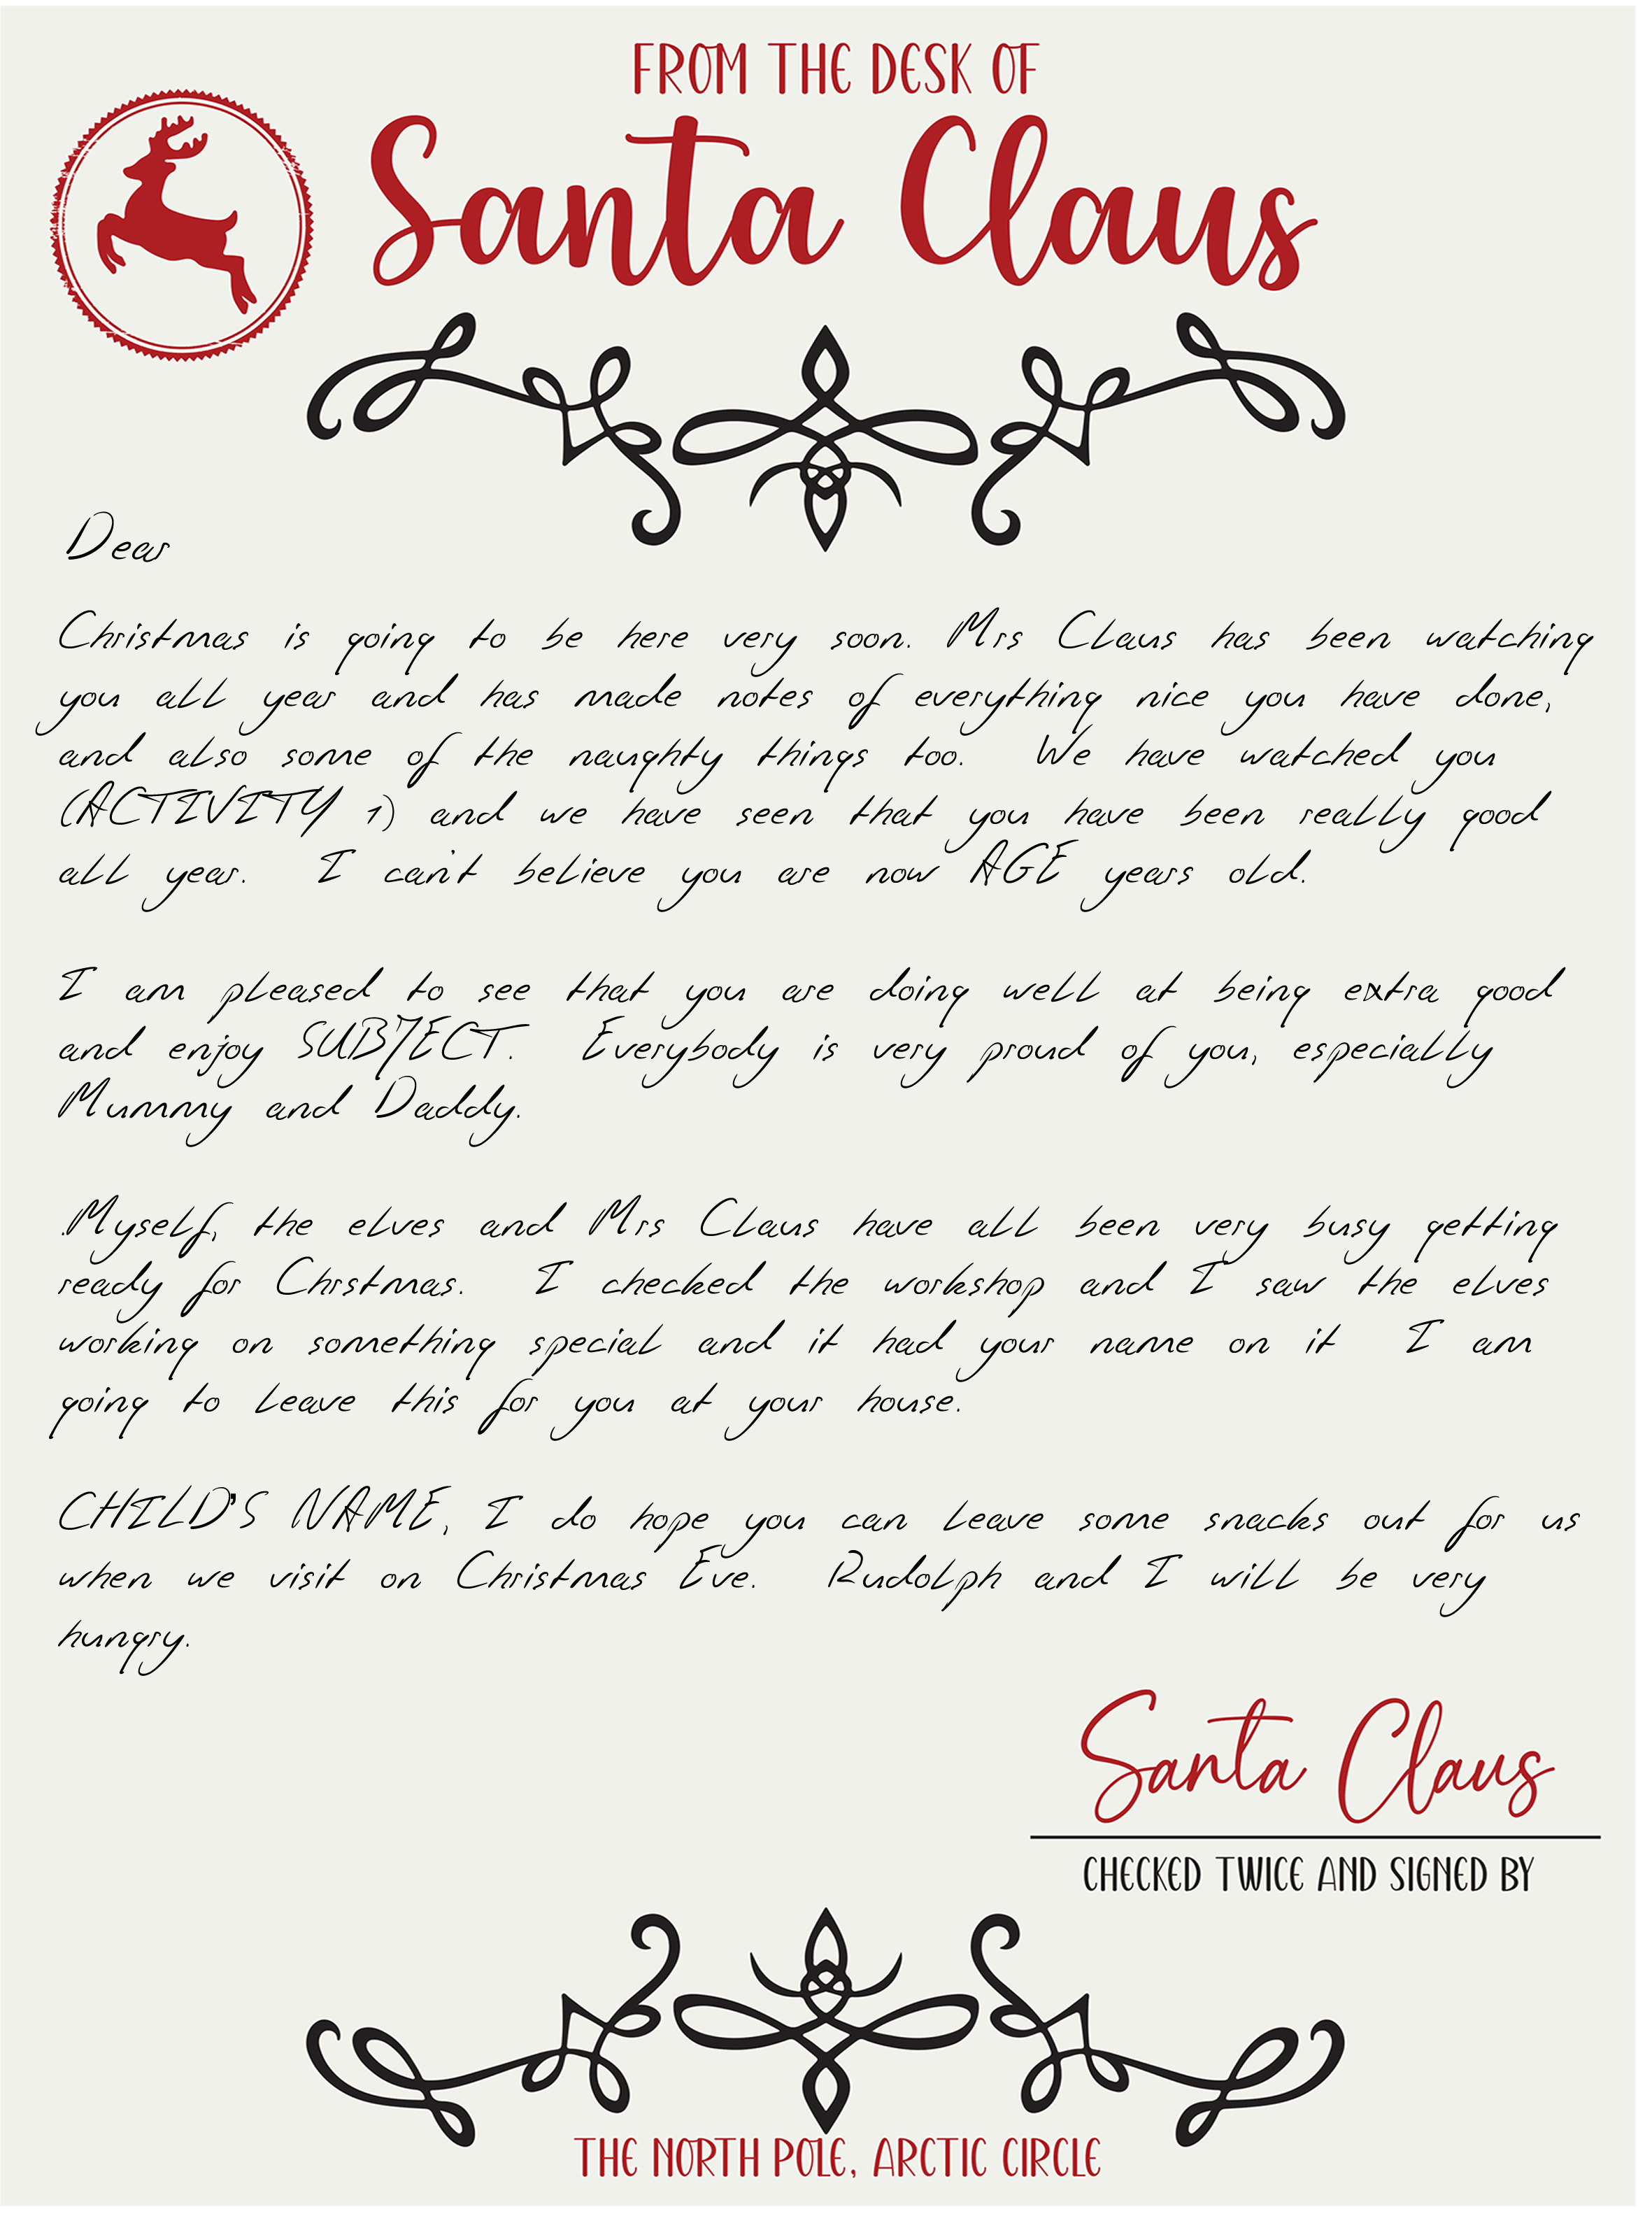 FROM THE DESK OF
Santa Claus
Dear
Christmas is going to be here very soon. Mrs Claus has been watching
you all year and has made notes of everything nice you have done,
and also some of the naughty things too. We have watched you
(ACTIVITY 1) and we have seen that you have been really good
all year. I can't believe you are now AGE years old.
I am pleased to see that you are doing well at being extra good
and enjoy SUBJECT. Everybody is very proud of you, especially
Mummy and Daddy.
.Myself, the elves and Mrs Claus have all been very busy getting
ready for Chrstmas. I checked the workshop and I saw the elves
working on something special and it had your name on it I am
going to leave this for you at your house.
CHILD'S NAME, I do hope you can leave some snacks out for us
when we visit on Christmas Eve. Rudolph and I will be very
hungry.
Santa Claus
CHECKED TWICE AND SIGNED BY
THE NORTH POLE, ARCTIC CIRCLE